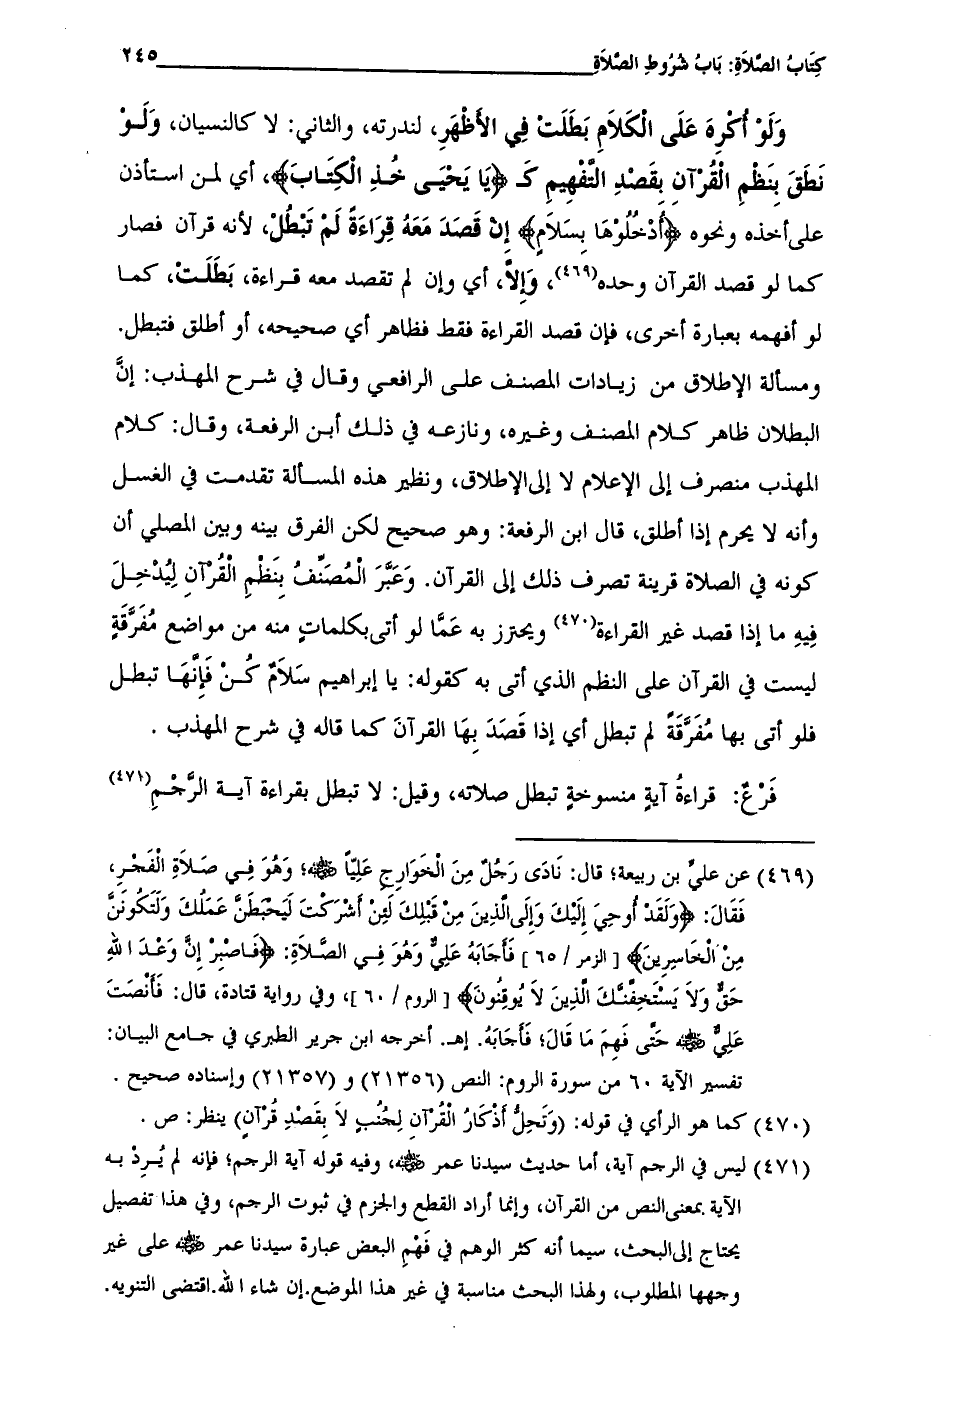 كِتَابُ الصَّلاَةِ: بَابُ شُرُوطِ الصَّلاَةِ ٢٤٥
وَلَوْ أُكْرِهَ عَلَى الْكَلاَمِ بَطَلَتْ فِي الأَظْهَرِ، لندرته، والثاني: لا كالنسيان، وَلَوْ
نَطَقَ بِنَظْمِ الْقُرْآنِ بِقَصْدِ التَّفْهِيمِ كَـ ﴿يَا يَحْيَى خُذِ الْكِتَابَ﴾، أي لمن استأذن
على أخذه ونحوه ﴿أُدْخُلُوْهَا بِسَلاَمٍ﴾ إِنْ قَصَدَ مَعَهُ قِرَاءَةً لَمْ تَبْطُلْ، لأنه قرآن فصار
كما لو قصد القرآن وحده(٤٦٩)، وَإِلاَّ، أي وإن لم تقصد معه قراءة، بَطَلَتْ، كما
لو أفهمه بعبارة أخرى، فإن قصد القراءة فقط فظاهر أي صحيحه، أو أطلق فتبطل.
ومسألة الإطلاق من زيادات المصنف على الرافعي وقال في شرح المهذب: إنَّ
البطلان ظاهر كلام المصنف وغيره، ونازعه في ذلك أبن الرفعة، وقال: كلام
المهذب منصرف إلى الإعلام لا إلى الإطلاق، ونظير هذه المسألة تقدمت في الغسل
وأنه لا يحرم إذا أطلق، قال ابن الرفعة: وهو صحيح لكن الفرق بينه وبين المصلي أن
كونه في الصلاة قرينة تصرف ذلك إلى القرآن. وَعَبَّرَ الْمُصَنِّفُ بِنَظْمِ الْقُرْآنِ لِيُدْخِلَ
فِيهِ ما إذا قصد غير القراءة(٤٧٠) ويحترز به عَمَّا لو أتى بكلماتٍ منه من مواضع مُفَرَّقَةٍ
ليست في القرآن على النظم الذي أتى به كقوله: يا إبراهيم سَلاَمٌ كُنْ فَإِنَّهَا تبطل
فلو أتى بها مُفَرَّقَةً لم تبطل أي إذا قَصَدَ بِهَا القرآنَ كما قاله في شرح المهذب .
فَرْعٌ: قراءةُ آيةٍ منسوخةٍ تبطل صلاته، وقيل: لا تبطل بقراءة آيـة الرَّجْمِ(٤٧١)
(٤٦٩) عن عليِّ بن ربيعة؛ قال: نَادَى رَجُلٌ مِنَ الْخَوَارِجِ عَلِيّاً ﷺ؛ وَهُوَ فِي صَلاَةِ الْفَجْرِ،
فَقَالَ: ﴿وَلَقَدْ أُوحِيَ إِلَيْكَ وَإِلَى الَّذِينَ مِنْ قَبْلِكَ لَئِنْ أَشْرَكْتَ لَيَحْبَطَنَّ عَمَلُكَ وَلَتَكُونَنَّ
مِنَ الْخَاسِرِينَ﴾ [ الزمر / ٦٥ ] فَأَجَابَهُ عَلِيٌّ وَهُوَ فِي الصَّلاَةِ: ﴿فَاصْبِرْ إِنَّ وَعْدَ اللهِ
حَقٌّ وَلاَ يَسْتَخِفَّنَّكَ الَّذِينَ لاَ يُوقِنُونَ﴾ [ الروم / ٦٠ ]، وفي رواية قتادة، قال: فَأَنْصَتَ
عَلِيٌّ ﷺ حَتَّى فَهِمَ مَا قَالَ؛ فَأَجَابَهُ. إهـ. أخرجه ابن جرير الطبري في جامع البيان:
تفسير الآية ٦٠ من سورة الروم: النص (٢١٣٥٦) و (٢١٣٥٧) وإسناده صحيح .
(٤٧٠) كما هو الرأي في قوله: (وَتَحِلُّ أَذْكَارُ الْقُرْآنِ لِجُنُبٍ لاَ بِقَصْدِ قُرْآنٍ) ينظر: ص .
(٤٧١) ليس في الرجم آية، أما حديث سيدنا عمر ﷺ، وفيه قوله آية الرجم؛ فإنه لم يُرِدْ بـه
الآية بمعنى النص من القرآن، وإنما أراد القطع والجزم في ثبوت الرجم، وفي هذا تفصيل
يحتاج إلى البحث، سيما أنه كثر الوهم في فَهْمِ البعض عبارة سيدنا عمر ﷺ على غير
وجهها المطلوب، ولهذا البحث مناسبة في غير هذا الموضع.إن شاء الله.اقتضى التنويه.